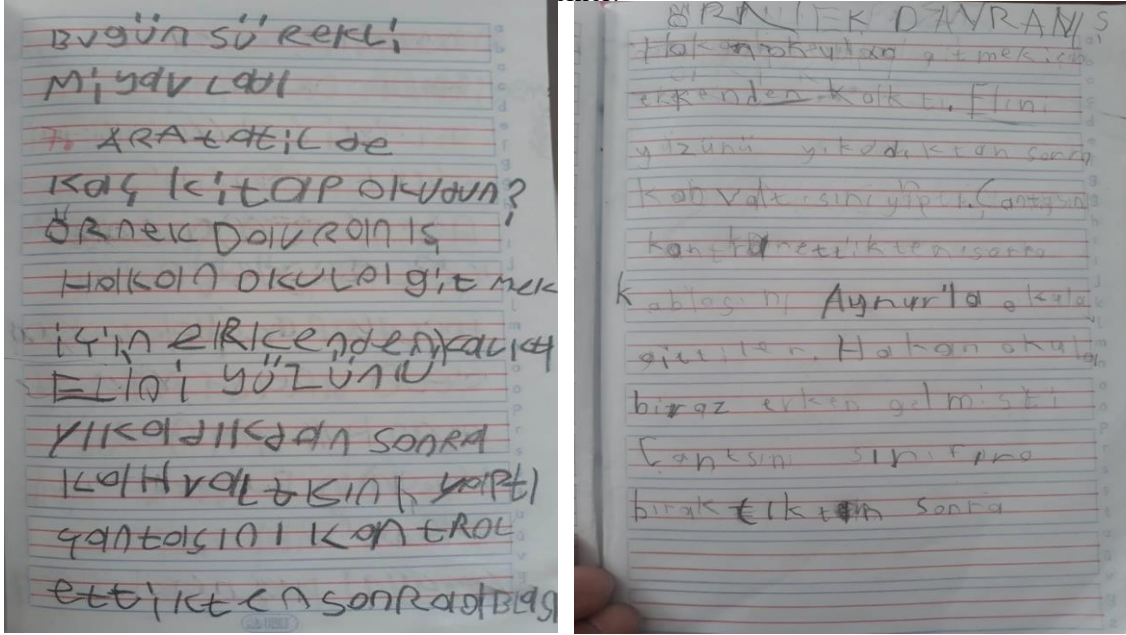 BUgüN SüREKLi
MiyavLadı
7. ARAtatiLde
Kaç kitap okudun?
ÖRnek DavRanış
Hakan okula gitmek
için eRkenden kalkt
ELini yüzünü
yıkadıkdan sonRa
kaHvaltısını yaptı
çantasını kontRol
ettikten sonRa abLas
ÖRNEK DAVRANIŞ
gitmek için
erkenden kalktı. Elini
yüzünü yıkadıktan sonra
kahvaltısini yaptı. Çantasın
ettikten sonra
Aynur'la okula
gittiler. Hakan okula
biraz erken gelmişti
Çantsını sınıfına
bıraktıktan sonra